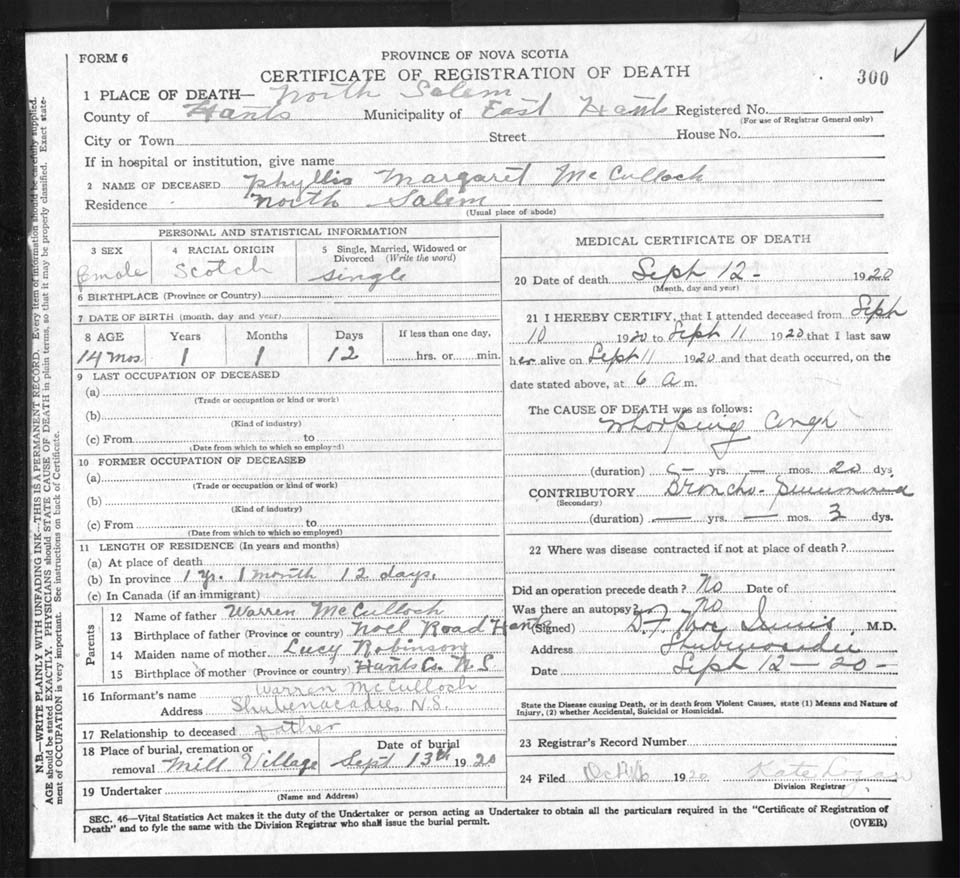 FORM 6
PROVINCE OF NOVA SCOTIA
CERTIFICATE OF REGISTRATION OF DEATH
300
1 PLACE OF DEATH— North Salem
County of Hants Municipality of East Hants Registered No.
(For use of Registrar General only)
City or Town Street House No.
If in hospital or institution, give name
2 NAME OF DECEASED Phyllis Margaret McCulloch
Residence North Salem
(Usual place of abode)
PERSONAL AND STATISTICAL INFORMATION
3 SEX 4 RACIAL ORIGIN 5 Single, Married, Widowed or Divorced (Write the word)
Scotch Single
6 BIRTHPLACE (Province or Country)
7 DATE OF BIRTH (month, day and year)
8 AGE Years Months Days If less than one day,
14 mos. 1 1 12 hrs. or min.
9 LAST OCCUPATION OF DECEASED
(a)
(Trade or occupation or kind or work)
(b)
(Kind of industry)
(c) From to
(Date from which to which so employed)
10 FORMER OCCUPATION OF DECEASED
(a)
(Trade or occupation or kind of work)
(b)
(Kind of industry)
(c) From to
(Date from which to which so employed)
11 LENGTH OF RESIDENCE (In years and months)
(a) At place of death
(b) In province 1 yr. 1 month 12 days.
(c) In Canada (if an immigrant)
Parents
12 Name of father Warren McCulloch
13 Birthplace of father (Province or country) Noel Road Hants
14 Maiden name of mother Lucy Robinson
15 Birthplace of mother (Province or country) Hants Co. N S
16 Informant's name Warren McCulloch
Address Shubenacadie, N.S.
17 Relationship to deceased father
18 Place of burial, cremation or removal Mill Village Date of burial Sept 13th 1920
19 Undertaker
(Name and Address)
MEDICAL CERTIFICATE OF DEATH
20 Date of death Sept 12 - 1920
(Month, day and year)
21 I HEREBY CERTIFY, that I attended deceased from Sept
10 1920 to Sept 11 1920 that I last saw
her alive on Sept 11 1920 and that death occurred, on the
date stated above, at 6 a m.
The CAUSE OF DEATH was as follows:
Whooping Cough
(duration) — yrs. — mos. 20 dys.
CONTRIBUTORY Broncho-pneumonia
(Secondary)
(duration) — yrs. — mos. 3 dys.
22 Where was disease contracted if not at place of death?
Did an operation precede death? No Date of
Was there an autopsy? No
(Signed) M.D.
Address Shubenacadie
Date Sept 12 — 20 -
State the Disease causing Death, or in death from Violent Causes, state (1) Means and Nature of
Injury, (2) whether Accidental, Suicidal or Homicidal.
23 Registrar's Record Number
24 Filed 1920 Kate Logan
Division Registrar
SEC. 46—Vital Statistics Act makes it the duty of the Undertaker or person acting as Undertaker to obtain all the particulars required in the "Certificate of Registration of
Death" and to fyle the same with the Division Registrar who shall issue the burial permit.
(OVER)
N.B.—WRITE PLAINLY WITH UNFADING INK—THIS IS A PERMANENT RECORD. Every item of information should be carefully supplied.
AGE should be stated EXACTLY. PHYSICIANS should STATE CAUSE OF DEATH in plain terms, so that it may be properly classified. Exact state-
ment of OCCUPATION is very important. See instructions on back of Certificate.